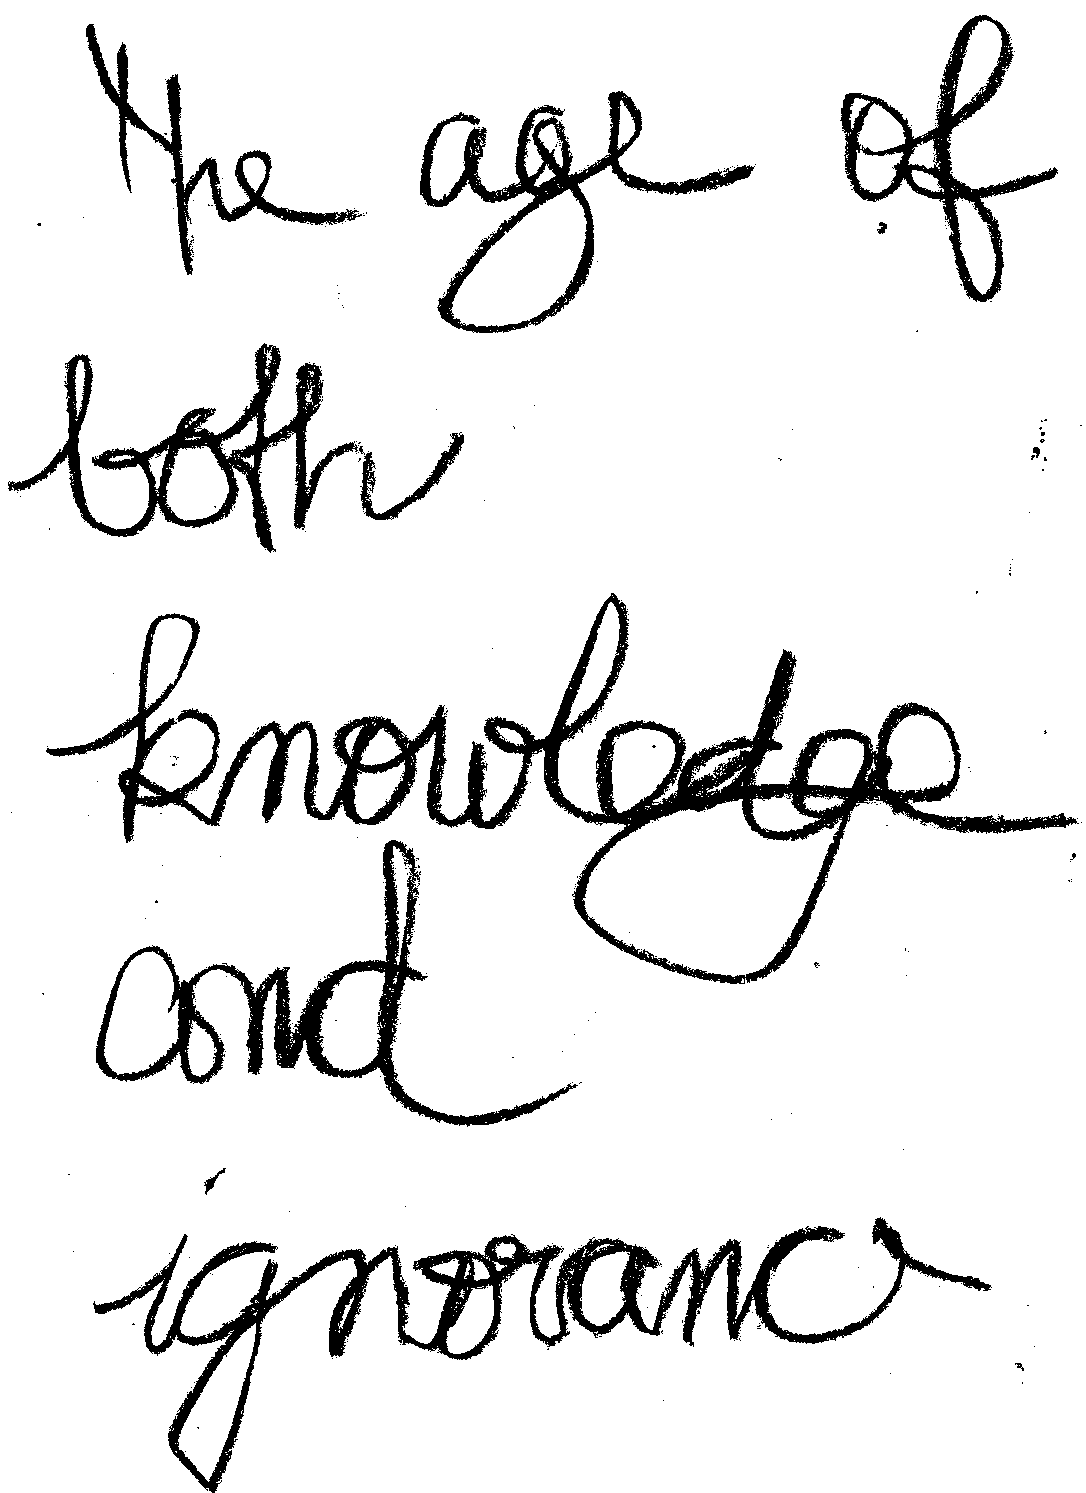 The age of
both
knowledge
and
ignorance